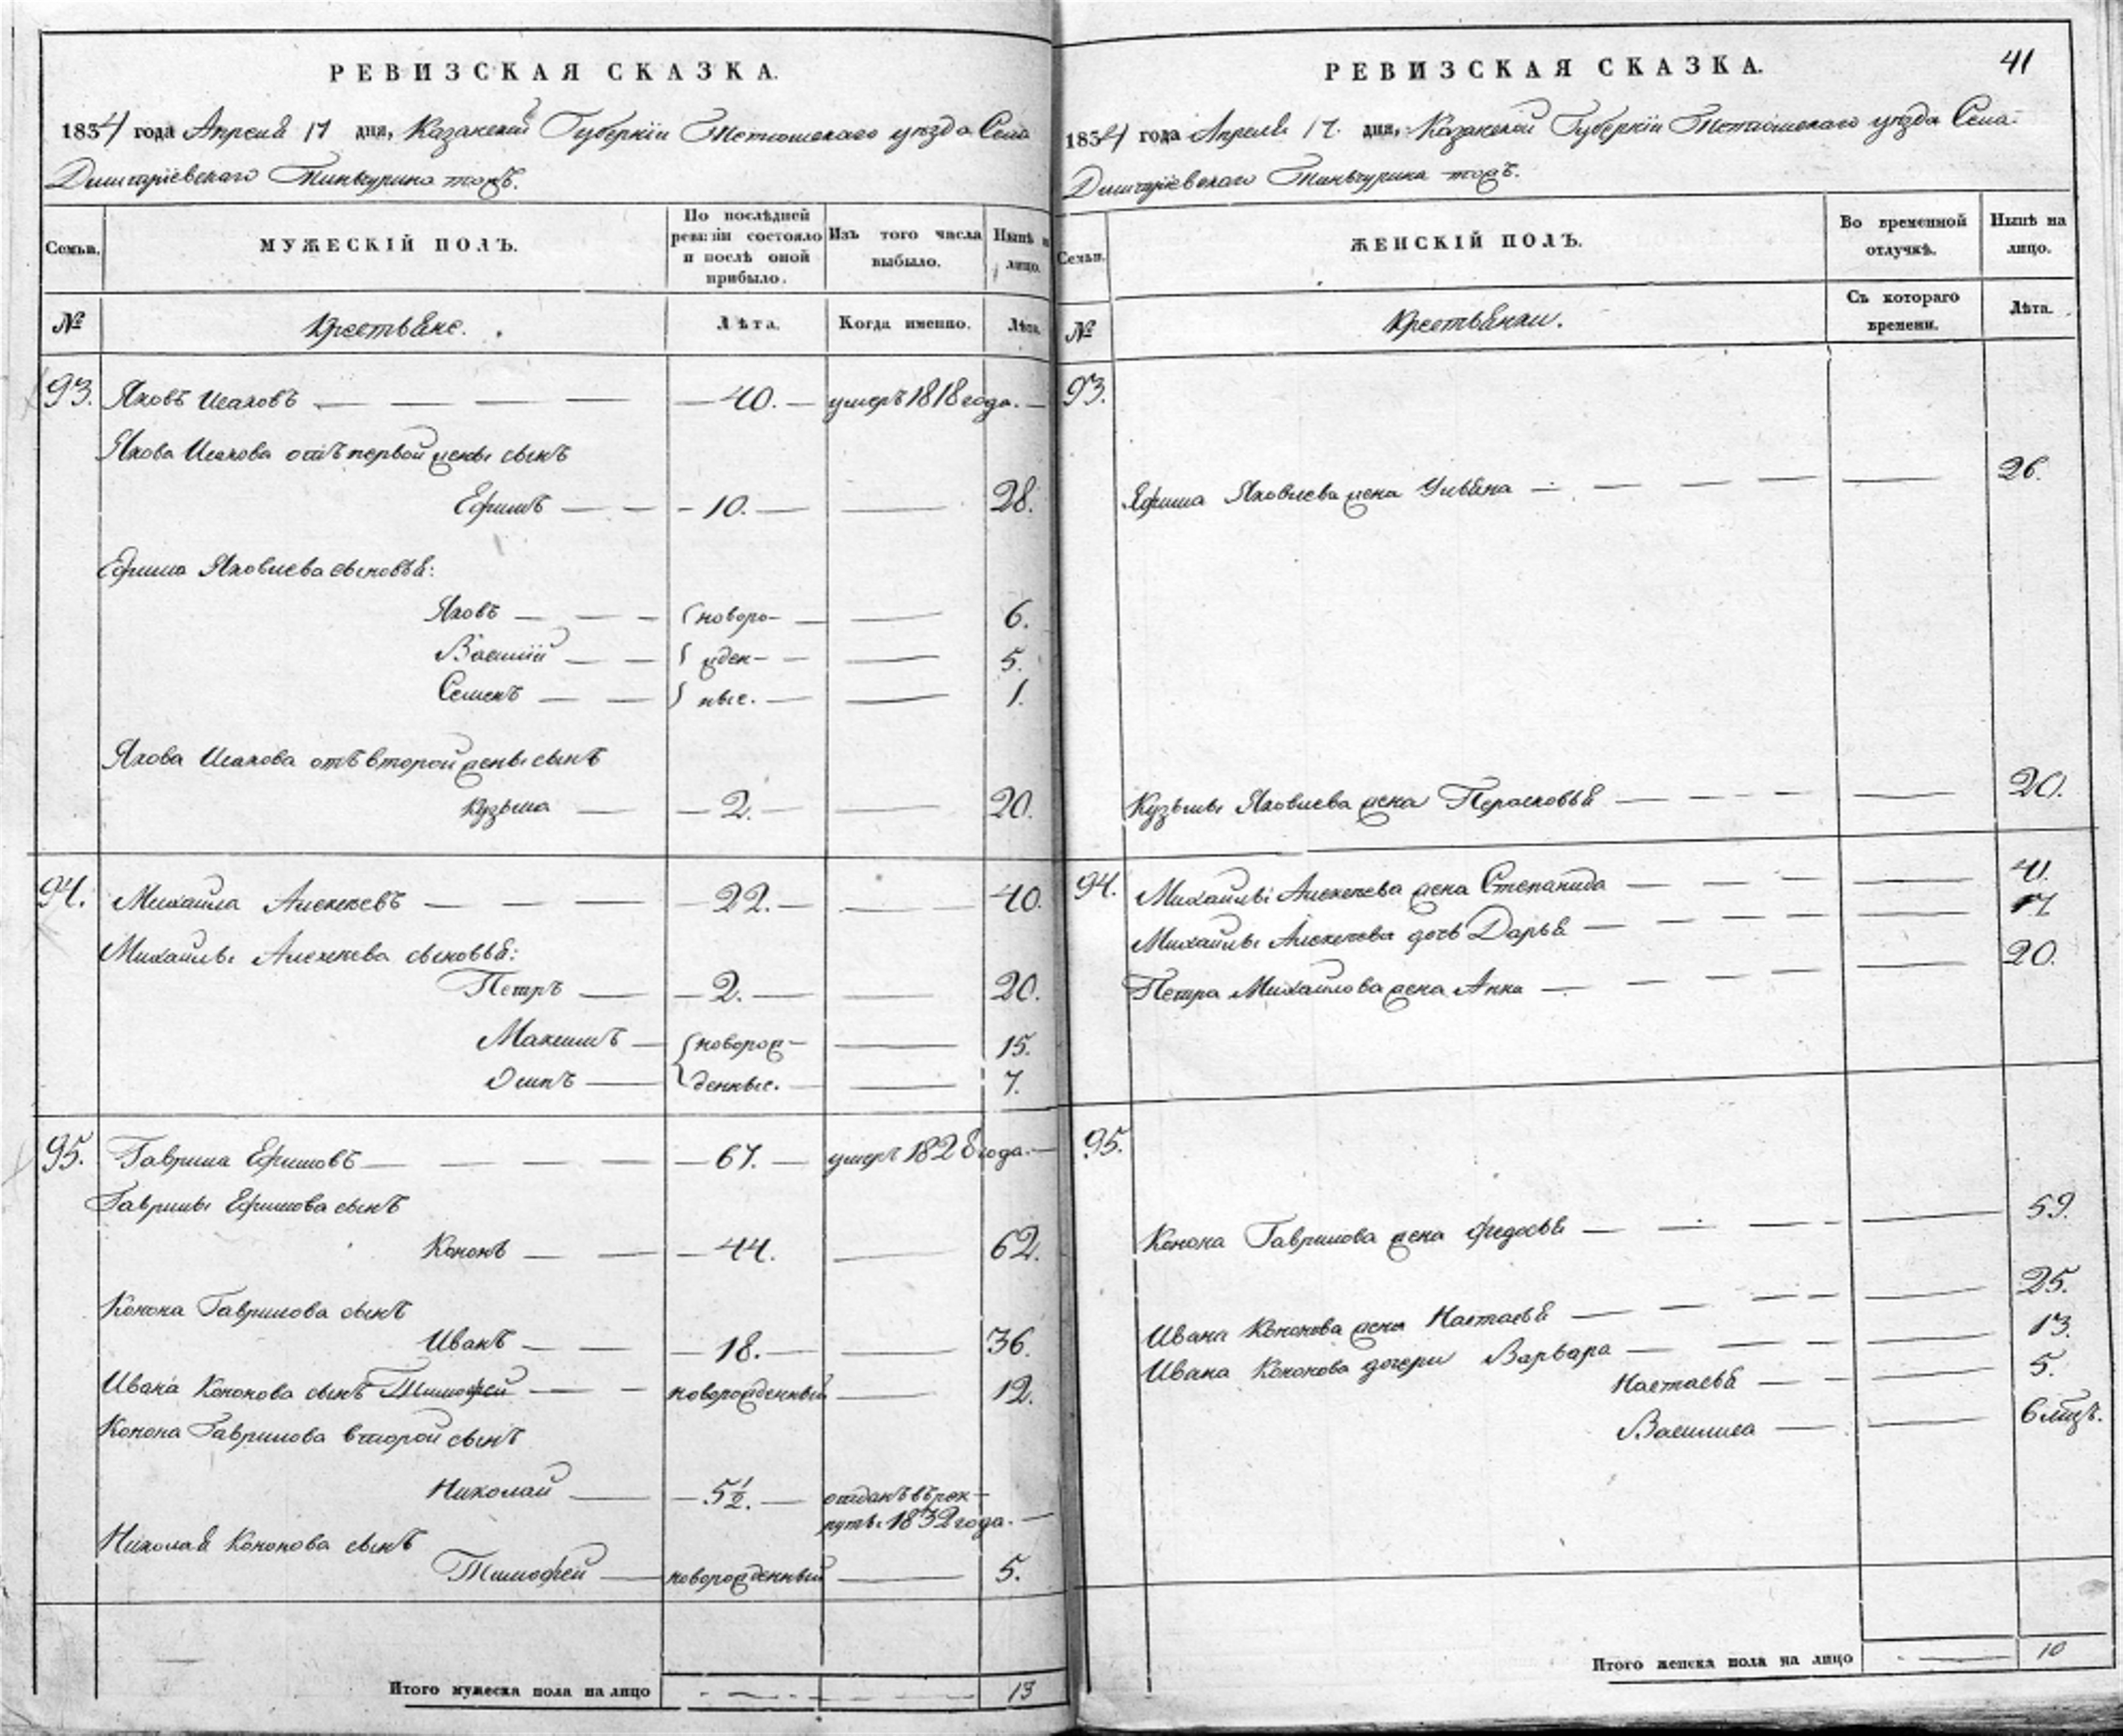 РЕВИЗСКАЯ СКАЗКА.
1834 года Апреля 17 дня, Казанской Губернiи Тетюшскаго уезда Села
Дмитрiевскаго Тиньчурина тожъ.
Семьи.
МУЖЕСКIЙ ПОЛЪ.
По послѣдней
ревизiи состояло
и послѣ оной
прибыло.
Изъ того числа
выбыло.
Нынѣ на
лицо.
№
Крестьяне.
Лѣта.
Когда именно.
Лѣта.
93. Яковъ Исаковъ — 40. — умеръ 1818 года. —
Якова Исакова отъ первой жены сынъ
Ефимъ — 10. — 28.
Ефима Яковлева сыновья:
Яковъ — новоро- — 6.
Василiй — жден- — 5.
Семенъ — ные. — 1.
Якова Исакова отъ второй жены сынъ
Кузьма — 2. — 20.
94. Михайла Алексѣевъ — 22. — 40.
Михайлы Алексѣева сыновья:
Петръ — 2. — 20.
Максимъ — новорож- — 15.
Осипъ — денные. — 7.
95. Гаврила Ефимовъ — 67. — умеръ 1828 года. —
Гаврилы Ефимова сынъ
Кононъ — 44. — 62.
Конона Гаврилова сынъ
Иванъ — 18. — 36.
Ивана Кононова сынъ Тимофей — новорожденный — 12.
Конона Гаврилова второй сынъ
Николай — 5½. — отданъ въ рек-
руты 1832 года. —
Николая Кононова сынъ
Тимофей — новорожденный — 5.
Итого мужеска пола на лицо 13
РЕВИЗСКАЯ СКАЗКА.
41
1834 года Апреля 17. дня, Казанской Губернiи Тетюшскаго уезда Села
Дмитрiевскаго Тиньчурина тожъ.
Семьи.
ЖЕНСКIЙ ПОЛЪ.
Во временной
отлучкѣ.
Нынѣ на
лицо.
№
Крестьянки.
Съ котораго
времени.
Лѣта.
93.
Ефима Яковлева жена Ульяна — 26.
Кузьмы Яковлева жена Перасковья — 20.
94. Михайлы Алексѣева жена Степанида — 41.
Михайлы Алексѣева дочь Дарья — 17
Петра Михайлова жена Анна — 20.
95.
Конона Гаврилова жена Федосья — 59.
Ивана Кононова жена Настасья — 25.
Ивана Кононова дочери Варвара — 13.
Настасья — 5.
Василиса — 6 мѣц.
Итого женска пола на лицо 10